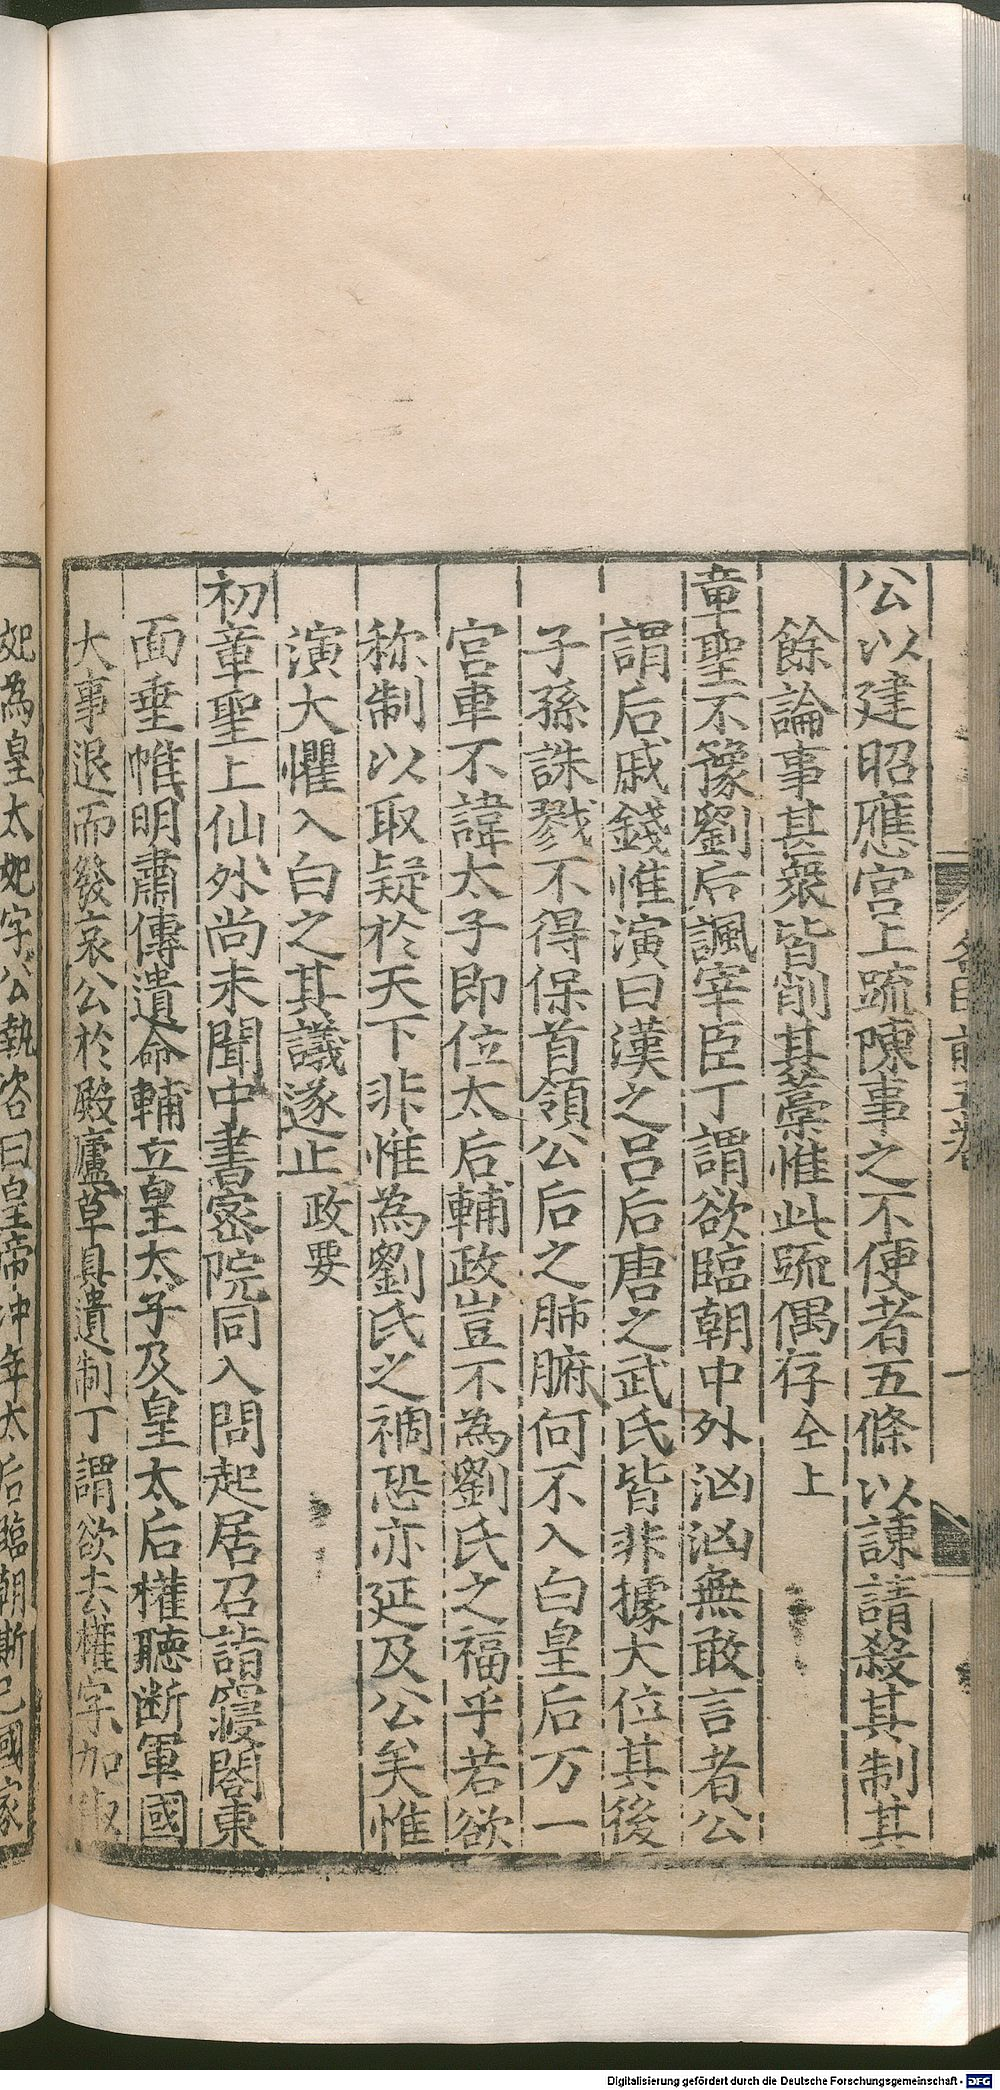 公以建昭應宮上疏陳事之不便者五條以諌請殺其制其
餘論事甚衆皆削其藁惟此䟽偶存仝上
章聖不豫劉后諷宰臣丁謂欲臨朝中外洶洶無敢言者公
謂后戚錢惟演曰漢之呂后唐之武氏皆非據大位其後
子孫誅戮不得保首領公后之肺腑何不入白皇后万一
宮車不諱太子即位太后輔政豈不為劉氏之福乎若欲
称制以取疑於天下非惟為劉氏之禍恐亦延及公矣惟
演大懼入白之其議遂止政要
初章聖上仙外尚未聞中書密院同入問起居召詣寢閤東
面垂帷明肅傳遺命輔立皇太子及皇太后權聽断軍國
大事退而發哀公於殿廬草具遺制丁謂欲去權字加淑
妃為皇太妃字公執咨曰皇帝冲年太后臨朝斯已國家
Digitalisierung gefördert durch die Deutsche Forschungsgemeinschaft - DFG